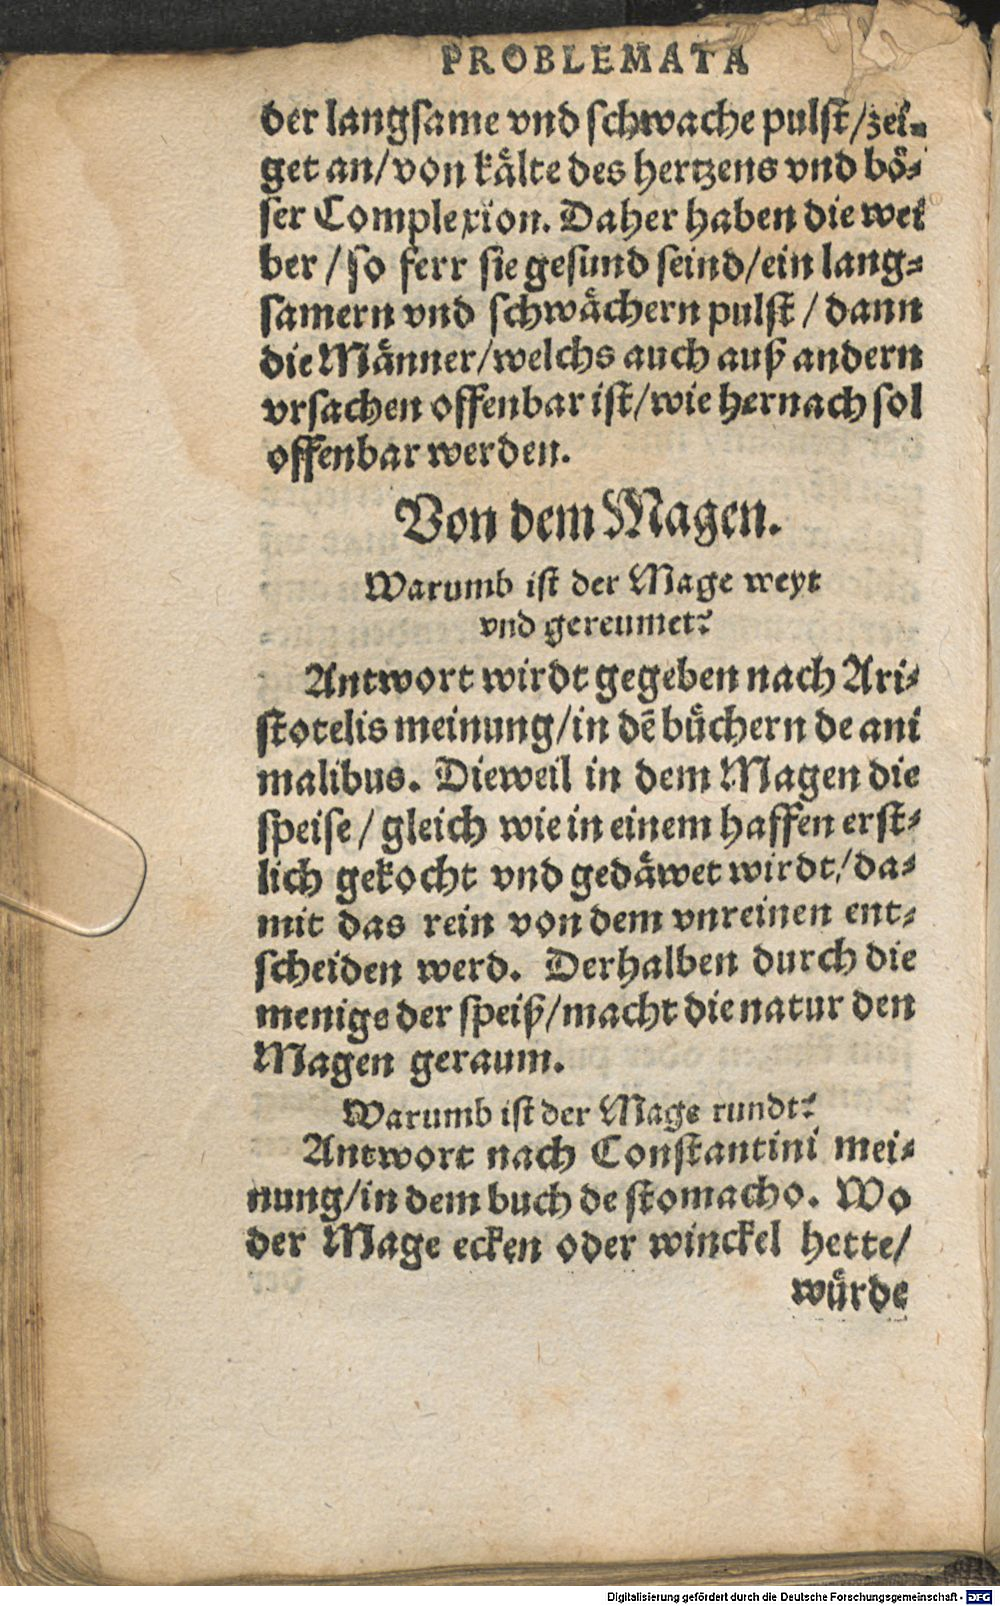 PROBLEMATA
der langsame vnd schwache pulst/zei-
get an/von kålte des hertzens vnd bö-
ser Complexion. Daher haben die wei
ber/so ferr sie gesund seind/ein lang-
samern vnd schwåchern pulst/dann
die Månner/welchs auch auß andern
vrsachen offenbar ist/wie hernach sol
offenbar werden.
Von dem Magen.
Warumb ist der Mage weyt
vnd gereumet?
Antwort wirdt gegeben nach Ari-
stotelis meinung/in dē bůchern de ani
malibus. Dieweil in dem Magen die
speise/gleich wie in einem haffen erst-
lich gekocht vnd gedåwet wirdt/da-
mit das rein von dem vnreinen ent-
scheiden werd. Derhalben durch die
menige der speiß/macht die natur den
Magen geraum.
Warumb ist der Mage rundt?
Antwort nach Constantini mei-
nung/in dem buch de stomacho. Wo
der Mage ecken oder winckel hette/
wůrde
Digitalisierung gefördert durch die Deutsche Forschungsgemeinschaft - DFG